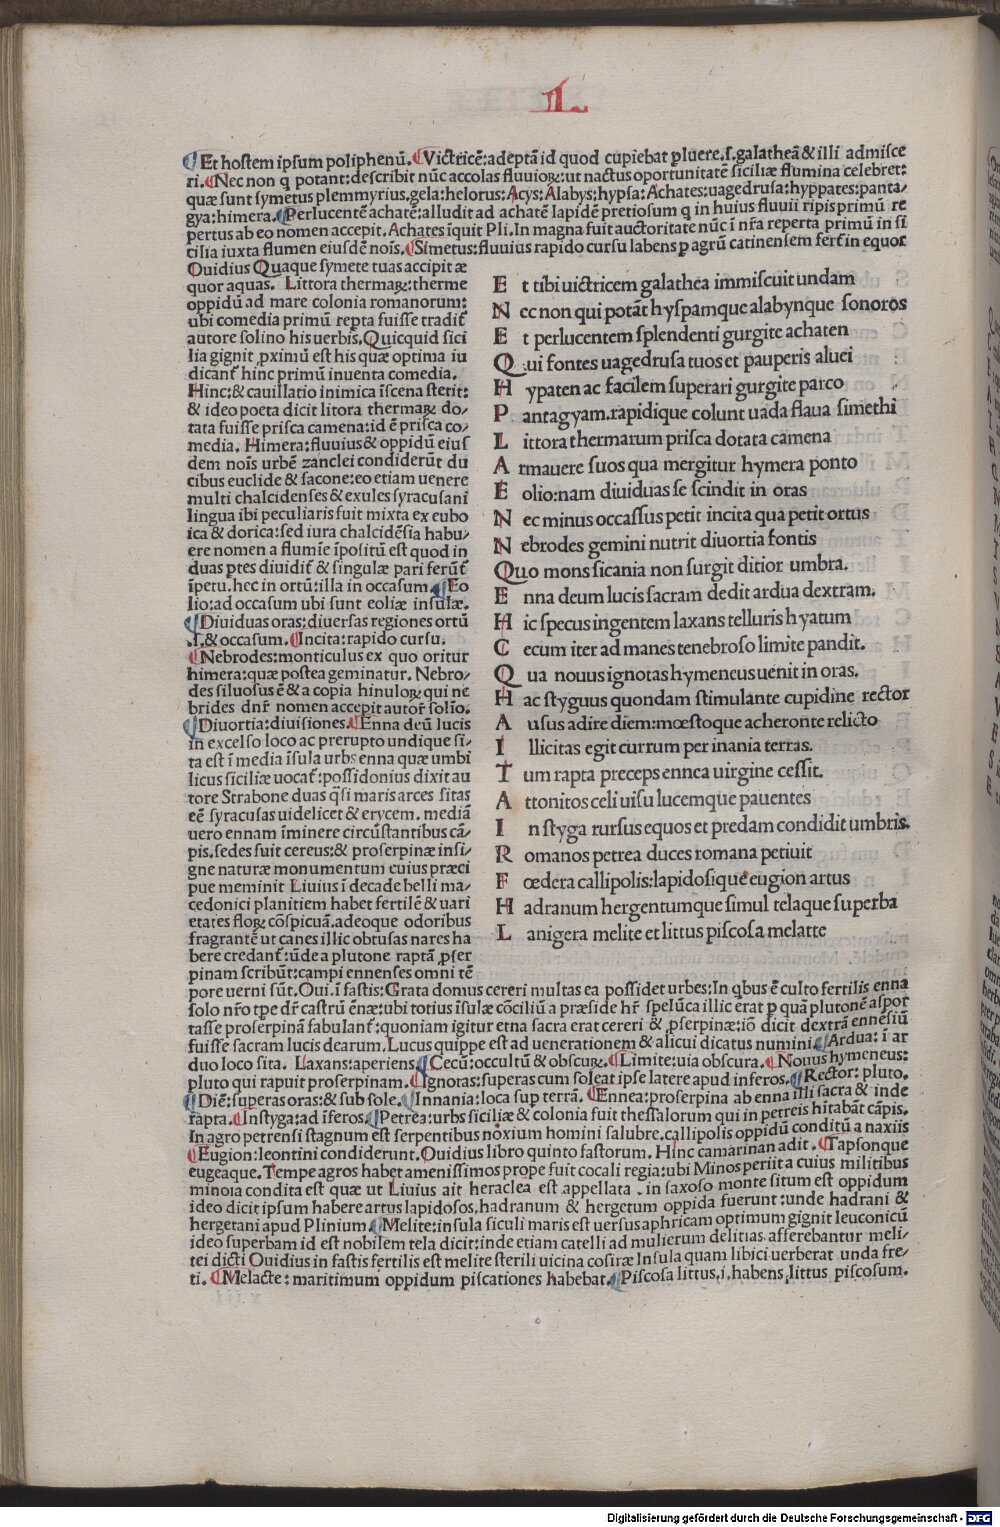 L
¶Et hostem ipsum poliphenū. ¶Victricē: adeptā id quod cupiebat ꝓluere.s.galatheā & illi admisce
ri. ¶Nec non q potant: describit nūc accolas fluuioꝝ: ut nactus oportunitatē siciliæ flumina celebret:
quæ sunt symetus plemmyrius.gela:helorus: Acys: Alabys:hypsa: Achates: uagedrusa:hyppates: panta-
gya: himera. ¶Perlucentē achatē: alludit ad achatē lapidē pretiosum q in huius fluuii ripis primū re
pertus ab eo nomen accepit. Achates iquit Pli. In magna fuit auctoritate nūc ī nr̄a reperta primū in si
cilia iuxta flumen eiusdē nois. ¶Simetus: fluuius rapido cursu labens ꝑ agrū catinensem fert in equor
Ouidius Quaque symete tuas accipit æ
quor aquas. Littora thermaꝝ: therme
oppidū ad mare colonia romanorum:
ubi comedia primū repta fuisse tradit
autore solino his uerbis. Quicquid sici
lia gignit ꝓximū est his quæ optima iu
dicant hinc primū inuenta comedia.
Hinc: & cauillatio inimica iscena sterit:
& ideo poeta dicit litora thermaꝝ do-
tata fuisse prisca camena: id ē prisca co-
media. Himera: fluuius & oppidū eius
dem nois urbē zanclei condiderūt du
cibus euclide & sacone: eo etiam uenere
multi chalcidenses & exules syracusani
lingua ibi peculiaris fuit mixta ex eubo
ica & dorica: sed iura chalcidēsia habu-
ere nomen a flumīe īpositū est quod in
duas ptes diuidit & singulæ pari ferūt
īpetu. hec in ortū: illa in occasum. ¶Eo
lio: ad occasum ubi sunt eoliæ insulæ.
¶Diuiduas oras: diuersas regiones ortū
.s. & occasum. ¶Incita: rapido cursu.
¶Nebrodes: monticulus ex quo oritur
himera: quæ postea geminatur. Nebro-
des siluosus ē & a copia hinuloꝝ qui ne
brides dnr̄ nomen accepit autor̄ solīo.
¶Diuortia: diuisiones. ¶Enna deū lucis
in excelso loco ac prerupto undique si-
ta est ī media īsula urbs enna quæ umbi
licus siciliæ uocat: possidonius dixit au
tore Strabone duas q̄si maris arces sitas
eē syracusas uidelicet & erycem. mediā
uero ennam īminere circūstantibus cā-
pis. sedes fuit cereus: & proserpinæ insi-
gne naturæ monumentum cuius præci
pue meminit Liuius ī decade belli ma-
cedonici planitiem habet fertilē & uari
etates floꝝ cōspicuā. adeoque odoribus
fragrantē ut canes illic obtusas nares ha
bere credant: ūde a plutone raptā ꝓser
pinam scribūt: campi ennenses omni tē
E t tibi uictricem galathea immiscuit undam
N ec non qui potāt hyspamque alabynque sonoros
E t perlucentem splendenti gurgite achaten
Q ui fontes uagedrusa tuos et pauperis aluei
H ypaten ac facilem superari gurgite parco
P antagyam. rapidique colunt uada flaua simethi
L ittora thermarum prisca dotata camena
A rmauere suos qua mergitur hymera ponto
E olio: nam diuiduas se scindit in oras
N ec minus occassus petit incita qua petit ortus
N ebrodes gemini nutrit diuortia fontis
Quo mons sicania non surgit ditior umbra.
E nna deum lucis sacram dedit ardua dextram.
H ic specus ingentem laxans telluris hyatum
C ecum iter ad manes tenebroso limite pandit.
Q ua nouus ignotas hymeneus uenit in oras.
H ac styguus quondam stimulante cupidine rector
A usus adire diem: mœstoque acheronte relicto
I llicitas egit currum per inania terras.
T um rapta preceps ennea uirgine cessit.
A ttonitos celi uisu lucemque pauentes
I n styga rursus equos et predam condidit umbris.
R omanos petrea duces romana petiuit
F œdera callipolis: lapidosique eugion artus
H adranum hergentumque simul telaque superba
L anigera melite et littus piscosa melatte
pore uerni sūt. Oui. ī fastis: Grata domus cereri multas ea possidet urbes: In qbus ē culto fertilis enna
solo nr̄o tpe dr̄ castrū ēnæ: ubi totius īsulæ cōciliū a præside hr̄ spelūca illic erat ꝑ quā plutonē aspor
tasse proserpinā fabulant: quoniam igitur etna sacra erat cereri & ꝓserpinæ: iō dicit dextrā ennēsiū
fuisse sacram lucis dearum. Lucus quippe est ad uenerationem & alicui dicatus numini. ¶Ardua: ī ar
duo loco sita. Laxans: aperiens. ¶Cecū: occultū & obscuꝝ. ¶Limite: uia obscura. ¶Nouus hymeneus:
pluto qui rapuit proserpinam. ¶Ignotas: superas cum soleat ipse latere apud inferos. ¶Rector: pluto.
¶Diē: superas oras: & sub sole. ¶Innania: loca sup terrā. ¶Ennea: proserpina ab enna illi sacra & inde
rapta. ¶Instyga: ad īferos. ¶Petrea: urbs siciliæ & colonia fuit thessalorum qui in petreis hītabāt cāpis.
In agro petrensi stagnum est serpentibus noxium homini salubre. callipolis oppidū conditū a naxiis
¶Eugion: leontini condiderunt. Ouidius libro quinto fastorum. Hinc camarinan adit. ¶Tapsonque
eugeaque. Tempe agros habet amenissimos prope fuit cocali regia: ubi Minos periit a cuius militibus
minoia condita est quæ ut Liuius ait heraclea est appellata. in saxoso monte situm est oppidum
ideo dicit ipsum habere artus lapidosos. hadranum & hergetum oppida fuerunt: unde hadrani &
hergetani apud Plinium. ¶Melite: insula siculi maris est uersus aphricam optimum gignit leuconicū
ideo superbam id est nobilem tela dicit: inde etiam catelli ad mulierum delitias afferebantur meli-
tei dicti Ouidius in fastis fertilis est melite sterili uicina cosiræ Insula quam libici uerberat unda fre-
ti. ¶Melacte: maritimum oppidum piscationes habebat. ¶Piscosa littus, i, habens littus piscosum.
Digitalisierung gefördert durch die Deutsche Forschungsgemeinschaft - DFG